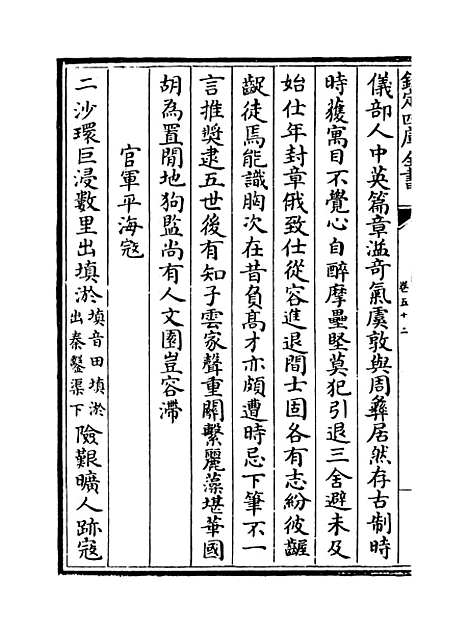 欽定四庫全書
卷五十二
儀部人中英篇章溢奇氣虞敦與周彞居然存古制時
時獲寓目不覺心自醉摩壘堅莫犯引退三舍避未及
始仕年封章俄致仕從容進退間士固各有志紛彼齷
齪徒焉能識胸次在昔負髙才亦頗遭時忌下筆不一
言推奬逮五世後有知子雲家聲重關繫麗藻堪華國
胡為置閒地狗監尚有人文園豈容滯
官軍平海冦
二沙環巨浸數里出填淤填音田填淤
出秦鑿渠下險艱曠人跡冦